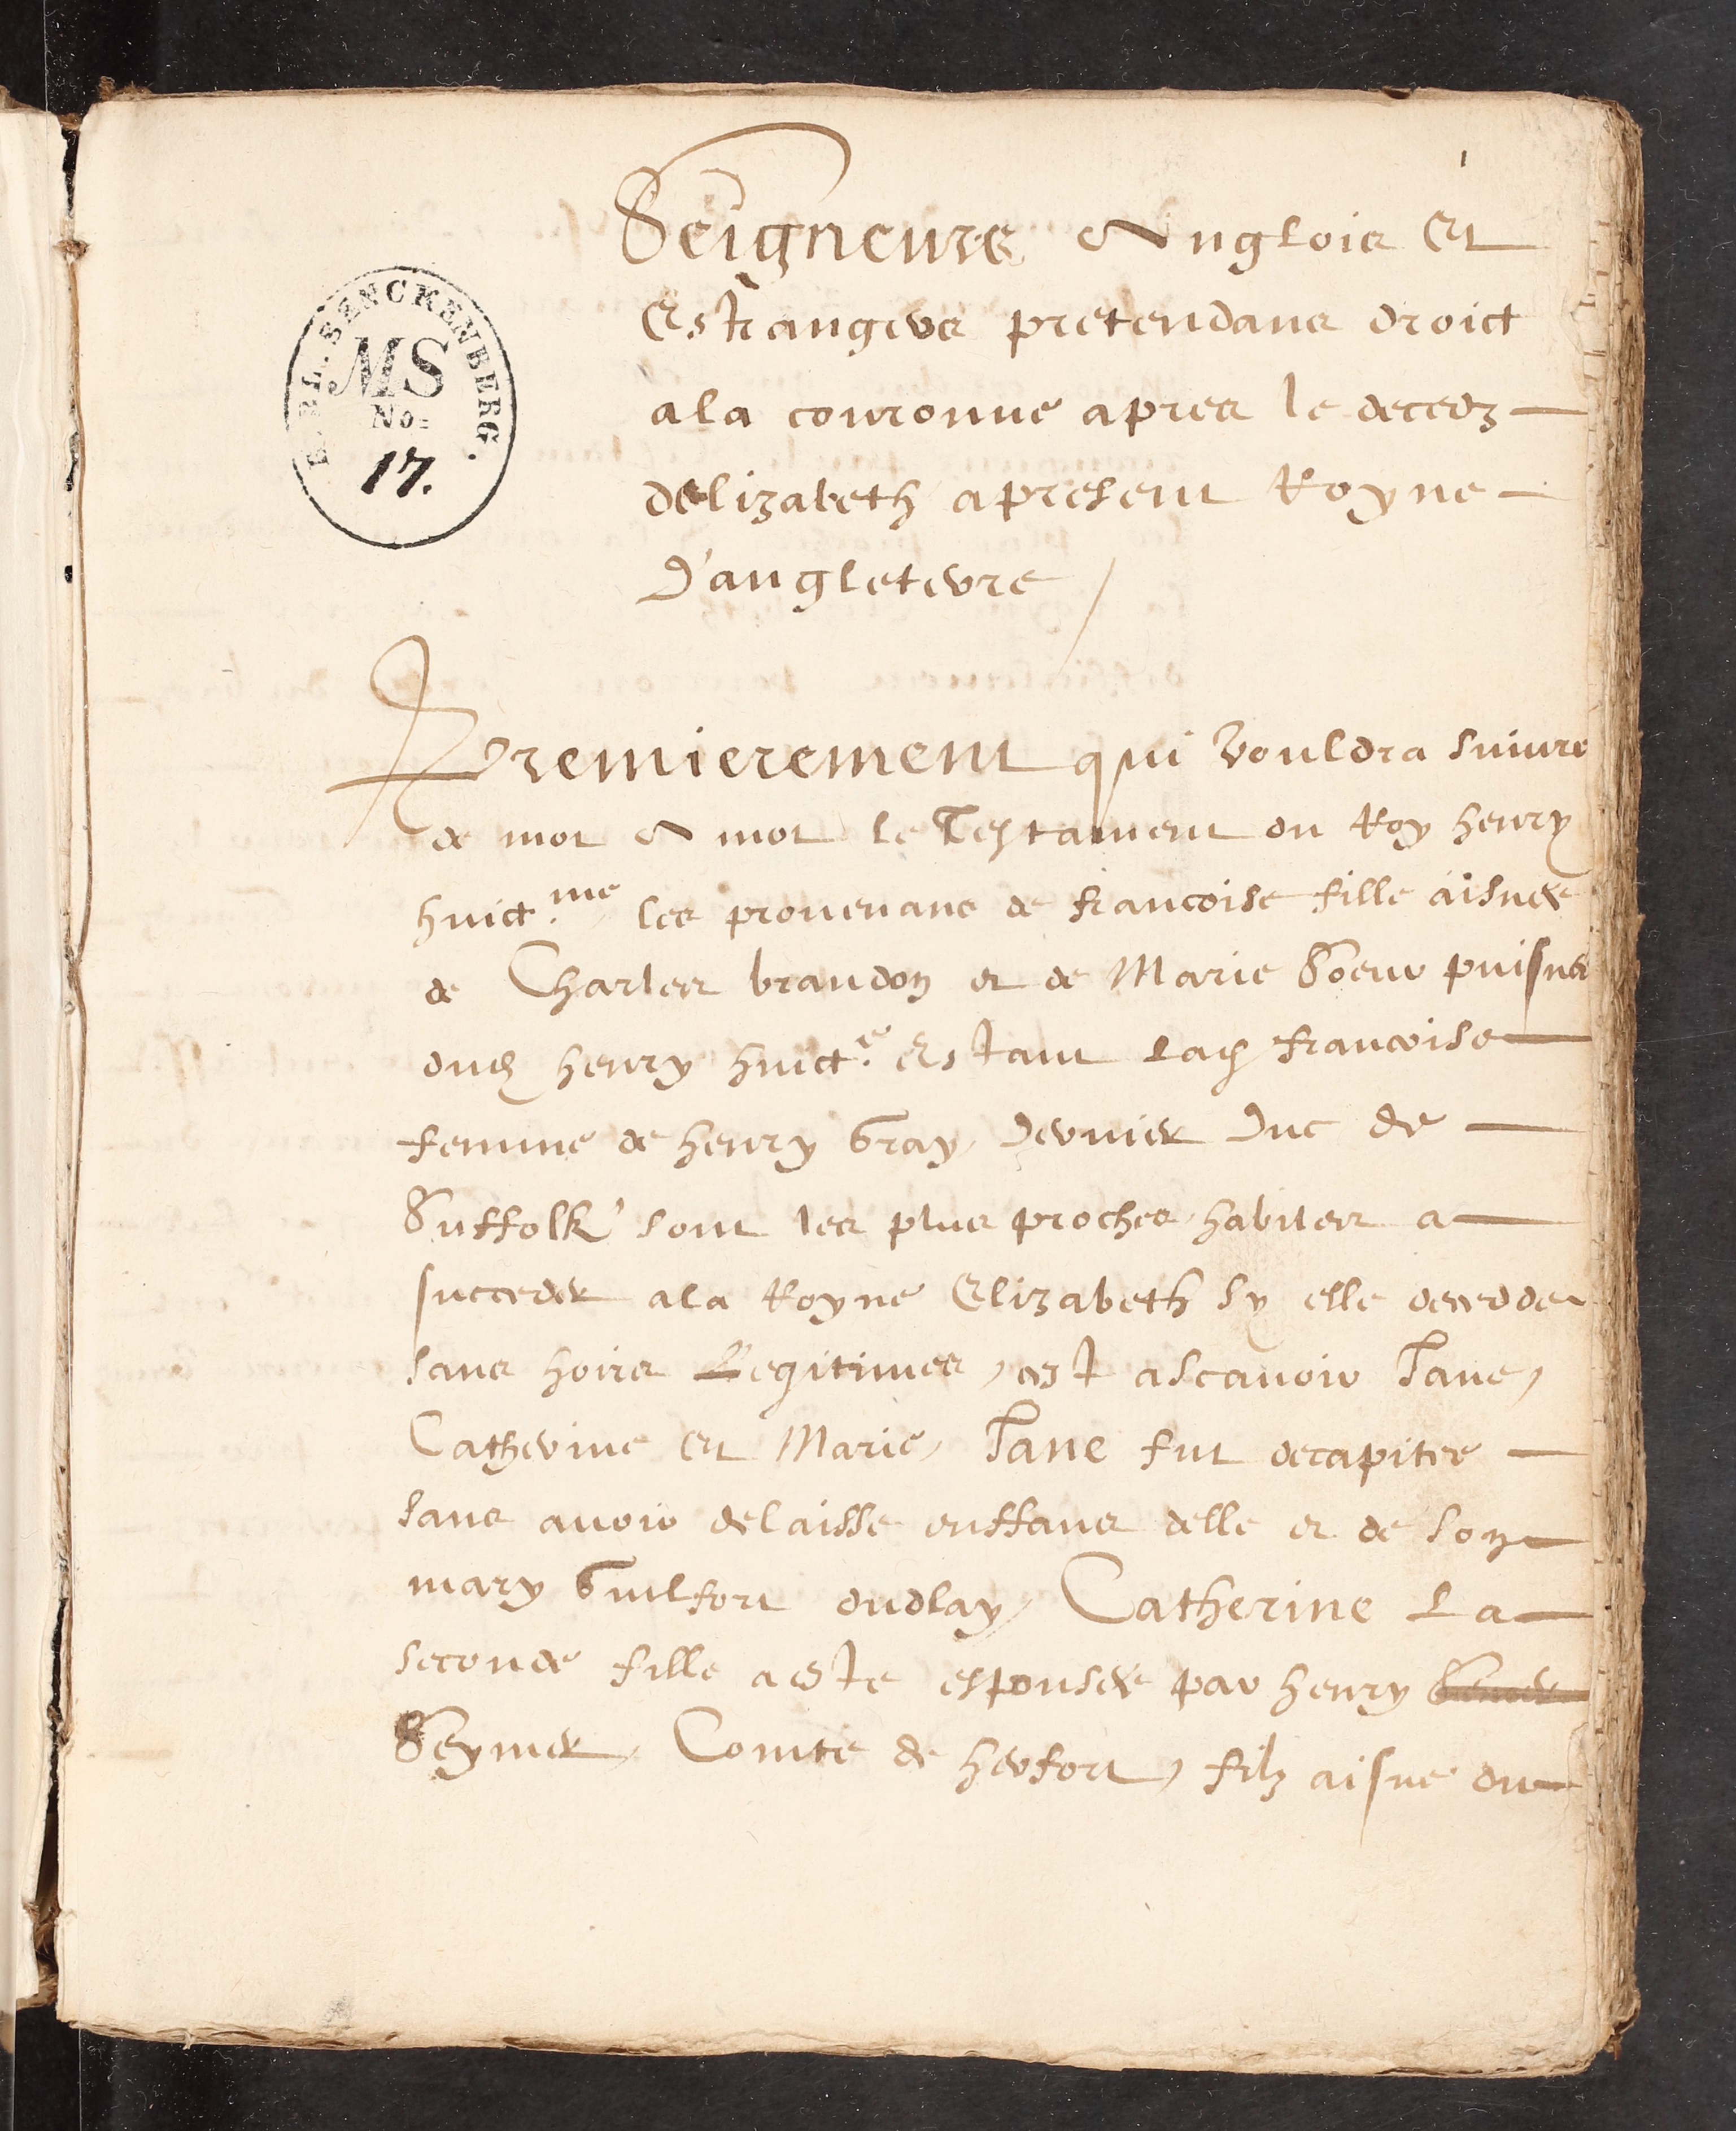 1
Seigneurs Anglois Et
Estrangers pretendans droict
ala couronne apres le decedz
delizabeth apresent Royne
D'angleterre /
BIBL. SENCKENBERG.
MS
No:
17.
Premierement qui vouldra suiure
de mot A mot le Testament du Roy henry
huict.me les prouenans de francoise fille aisnee
de Charles brandon et de Marie Soeur puisnee
dud henry huict.e Estant lad francoise
femme de henry Gray, dernier duc de
Suffolk sont les plus proches habiles a
succeder ala Royne Elizabeth sy elle decedde
sans hoirs Legitimes, est ascauoir Jane,
Catherine Et Marie, Jane fut decapitee
sans auoir delaisse enffans delle et de son
mary Guilfort dudlay, Catherine La
seconde fille a este espousee par henry
Seymer, Comte de herfort, filz aisne du